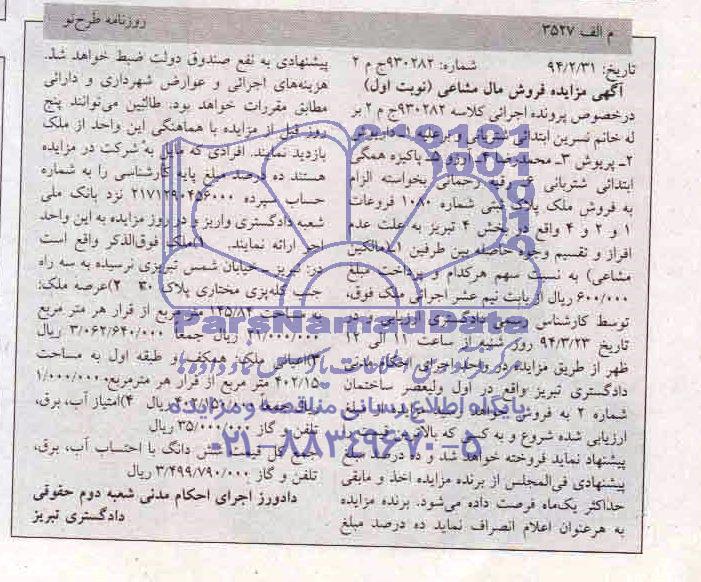 روزنامه طرح‌نو
م الف ۳۵۲۷
تاریخ: ۹۴/۲/۳۱ شماره: ۹۳۰۲۸۲ج م ۲
آگهی مزایده فروش مال مشاعی (نوبت اول)
درخصوص پرونده اجرائی کلاسه ۹۳۰۲۸۲ج م ۲ بر
له خانم نسرین ابتدائی شتربانی و برعلیه
۲ـ پریوش ۳ـ محمدرضا ۴ـ آرزو ۵ـ پاکیزه همگی
ابتدائی شتربانی رقیه رحمانی بخواسته الزام
به فروش ملک پلاک ثبتی شماره ۱۰۸۰ فروعات
۱ و ۲ و ۴ واقع در بخش ۴ تبریز به علت عدم
افراز و تقسیم وجوه حاصله بین طرفین (مالکین
مشاعی) به نسبت سهم هرکدام و پرداخت مبلغ
۶۰۰/۰۰۰ ریال از بابت نیم عشر اجرائی ملک فوق،
توسط کارشناس رسمی دادگستری ارزیابی و در
تاریخ ۹۴/۳/۲۳ روز شنبه از ساعت ۱۱ الی ۱۲
ظهر از طریق مزایده در واحد اجرای احکام مدنی
دادگستری تبریز واقع در اول ولیعصر ساختمان
شماره ۲ به فروش خواهد رسید مزایده از مبلغ
ارزیابی شده شروع و به کسی که بالاترین قیمت را
پیشنهاد نماید فروخته خواهد شد و ده درصد مبلغ
پیشنهادی فی‌المجلس از برنده مزایده اخذ و مابقی
حداکثر یک‌ماه فرصت داده می‌شود. برنده مزایده
به هرعنوان اعلام انصراف نماید ده درصد مبلغ
پیشنهادی به نفع صندوق دولت ضبط خواهد شد.
هزینه‌های اجرائی و عوارض شهرداری و دارائی
مطابق مقررات خواهد بود. طالبین می‌توانند پنج
روز قبل از مزایده با هماهنگی این واحد از ملک
بازدید نمایند. افرادی که مایل به شرکت در مزایده
هستند ده درصد مبلغ پایه کارشناسی را به شماره
حساب سپرده ۲۱۷۱۲۹۰۴۵۶۰۰۰ نزد بانک ملی
شعبه دادگستری واریز و در روز مزایده به این واحد
اجرا ارائه نمایند. ۱)ملک فوق‌الذکر واقع است
در: تبریز ـ خیابان شمس تبریزی نرسیده به سه راه
جنب کله‌پزی مختاری پلاک ۳۰ ۲)عرصه ملک:
به مساحت ۱۴۵/۸۴ متر مربع از قرار هر متر مربع
۲۱/۰۰۰/۰۰۰ ریال جمعاً ۳/۰۶۲/۶۴۰/۰۰۰ ریال
۳)اعیانی ملک: همکف و طبقه اول به مساحت
۴۰۲/۱۵ متر مربع از قرار هر مترمربع ۱/۰۰۰/۰۰۰
ریال جمعاً ۴۰۲/۱۵۰/۰۰۰ ریال ۴)امتیاز آب، برق،
تلفن و گاز ۳۵/۰۰۰/۰۰۰ ریال
جمع کل قیمت شش دانگ با احتساب آب، برق،
تلفن و گاز ۳/۴۹۹/۷۹۰/۰۰۰ ریال
دادورز اجرای احکام مدنی شعبه دوم حقوقی
دادگستری تبریز
ParsNamadData
پایگاه اطلاع رسانی مناقصه و مزایده
۰۲۱-۸۸۳۴۹۶۷۰-۵